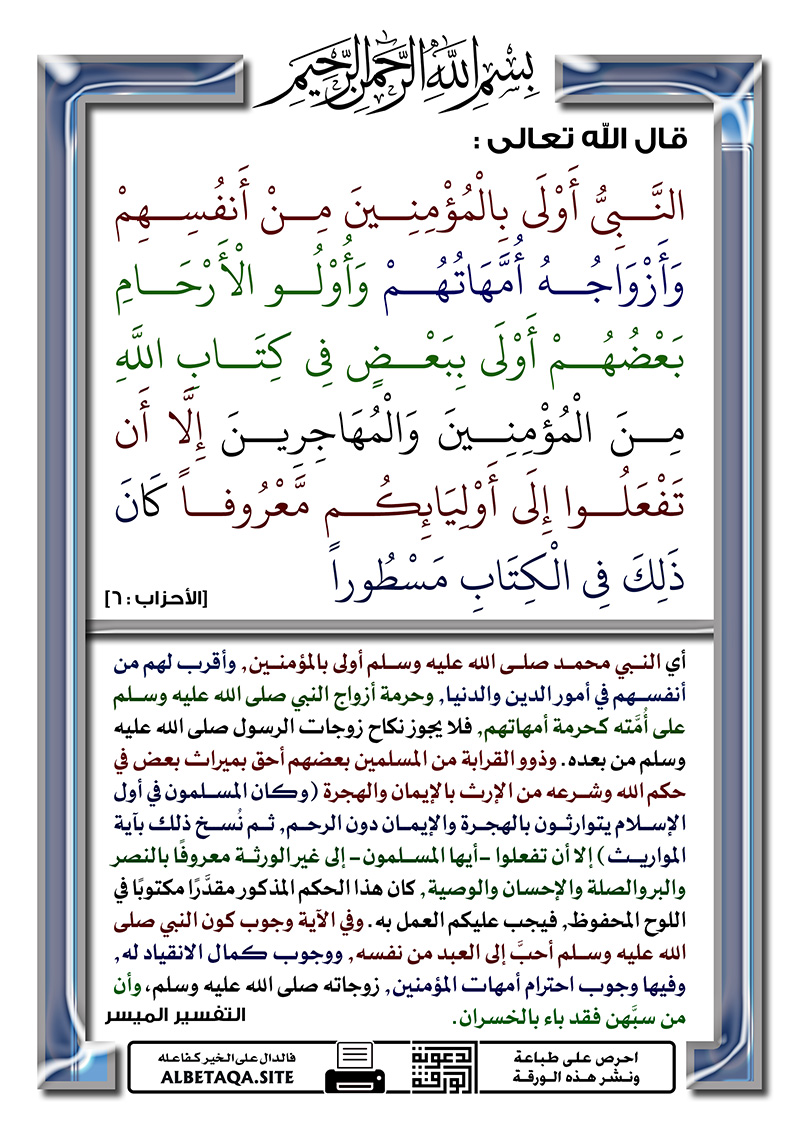 بِسْمِ اللَّهِ الرَّحْمَنِ الرَّحِيمِ
قال الله تعالى :
النَّبِيُّ أَوْلَى بِالْمُؤْمِنِينَ مِنْ أَنفُسِهِمْ
وَأَزْوَاجُهُ أُمَّهَاتُهُمْ وَأُوْلُو الْأَرْحَامِ
بَعْضُهُمْ أَوْلَى بِبَعْضٍ فِي كِتَابِ اللَّهِ
مِنَ الْمُؤْمِنِينَ وَالْمُهَاجِرِينَ إِلَّا أَن
تَفْعَلُوا إِلَى أَوْلِيَائِكُم مَّعْرُوفاً كَانَ
ذَلِكَ فِي الْكِتَابِ مَسْطُوراً
[الأحزاب : ٦]
أي النبي محمد صلى الله عليه وسلم أولى بالمؤمنين, وأقرب لهم من
أنفسهم في أمور الدين والدنيا, وحرمة أزواج النبي صلى الله عليه وسلم
على أُمَّته كحرمة أمهاتهم, فلا يجوز نكاح زوجات الرسول صلى الله عليه
وسلم من بعده. وذوو القرابة من المسلمين بعضهم أحق بميراث بعض في
حكم الله وشرعه من الإرث بالإيمان والهجرة (وكان المسلمون في أول
الإسلام يتوارثون بالهجرة والإيمان دون الرحم, ثم نُسخ ذلك بآية
المواريث) إلا أن تفعلوا -أيها المسلمون- إلى غير الورثة معروفًا بالنصر
والبر والصلة والإحسان والوصية, كان هذا الحكم المذكور مقدَّرًا مكتوبًا في
اللوح المحفوظ, فيجب عليكم العمل به. وفي الآية وجوب كون النبي صلى
الله عليه وسلم أحبَّ إلى العبد من نفسه, ووجوب كمال الانقياد له,
وفيها وجوب احترام أمهات المؤمنين, زوجاته صلى الله عليه وسلم، وأن
من سبَّهن فقد باء بالخسران.
التفسير الميسر
احرص على طباعة
ونشر هذه الورقة
الورقة الدعوية
فالدال على الخير كفاعله
ALBETAQA.SITE